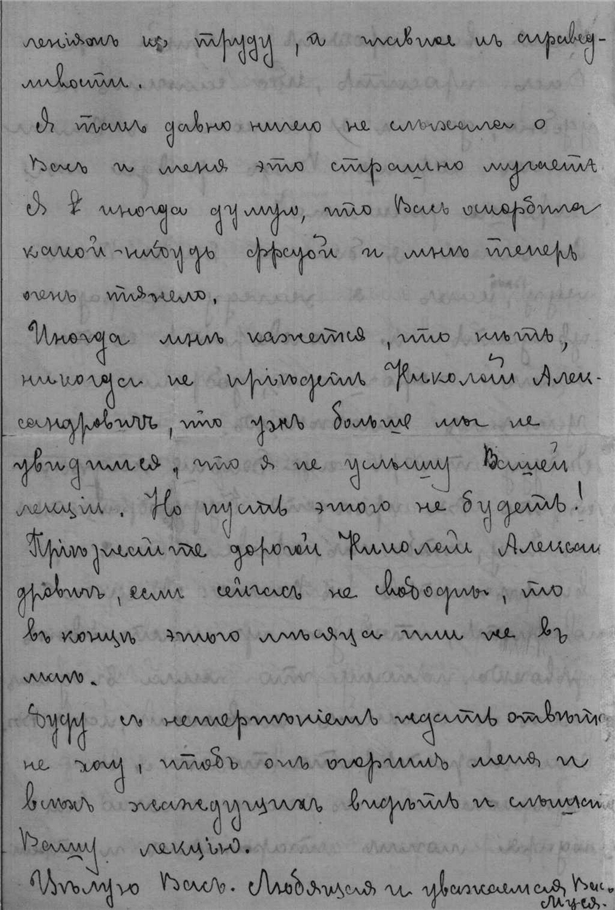 леніямъ къ труду, а главное къ справед-
ливости.
Я такъ давно ничего не слыхала о
Васъ и меня это страшно мучаетъ
Я иногда думаю, что Васъ оскорбила
какой-нибудь фразой и мнѣ теперь
очень тяжело.
Иногда мнѣ кажется, что нѣтъ,
никогда не пріѣдетъ Николай Алек-
сандровичъ, что ужъ больше мы не
увидимся, что я не услышу Вашей
лекціи. Но пусть этого не будетъ!
Пріѣзжайте дорогой Николай Алексан
дровичъ, если сейчасъ не свободны, то
въ концѣ этого мѣсяца или же въ
маѣ.
Буду съ нетерпѣніемъ ждать отвѣта,
не хочу, чтобъ онъ огорчилъ меня и
всѣхъ жаждущихъ видѣть и слышать
Вашу лекцію.
Цѣлую Васъ. Любящая и уважаемая Васъ
Муся.